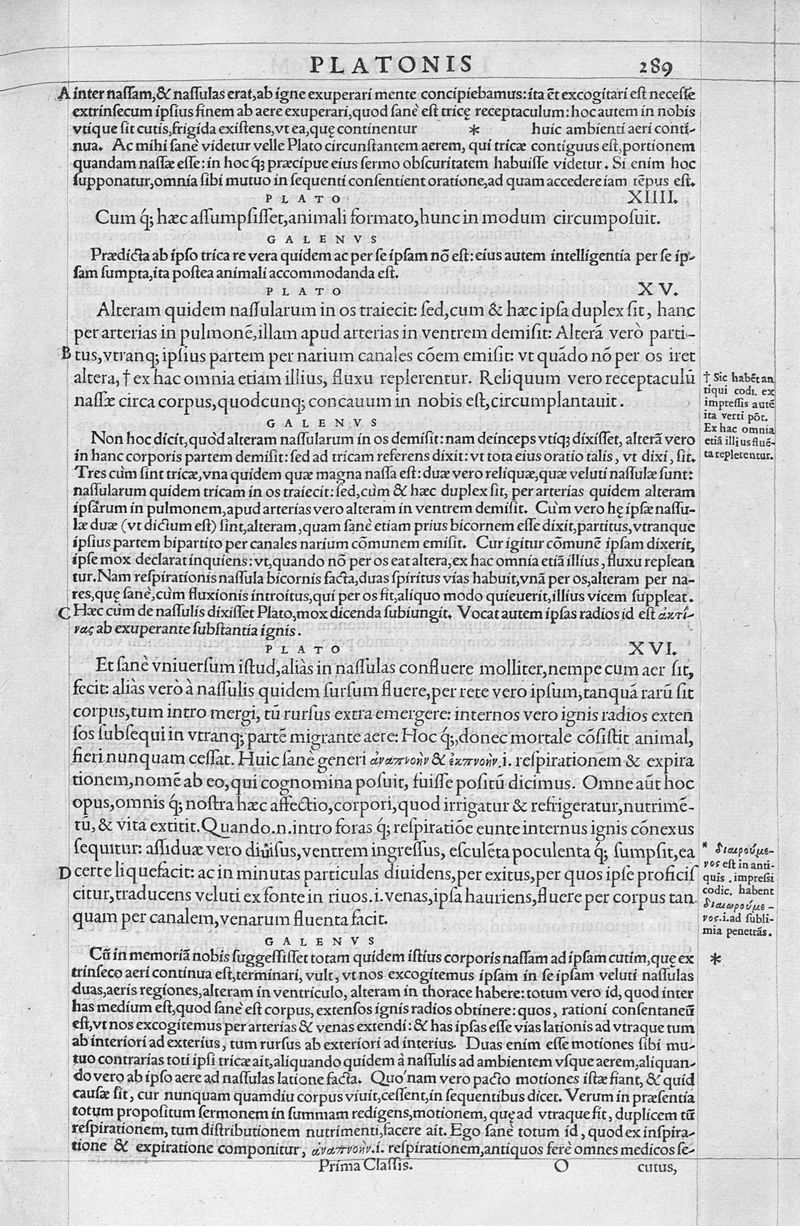 PLATONIS 289
A inter nassam,& nassulas erat,ab igne exuperari mente concipiebamus: ita ẽt excogitari est necesse
extrinsecum ipsius finem ab aere exuperari,quod sanè est tricę receptaculum: hoc autem in nobis
vtique sit cutis,frigida existens,vt ea,quę continentur * huic ambienti aeri conti-
nua. Ac mihi sanè videtur velle Plato circunstantem aerem, qui tricæ contiguus est,portionem
quandam nassæ esse: in hoc q; præcipue eius sermo obscuritatem habuisse videtur. Si enim hoc
supponatur,omnia sibi mutuo in sequenti consentient oratione,ad quam accedere iam tẽpus est.
PLATO XIIII.
Cum q; hæc assumpsisset,animali formato,hunc in modum circumposuit.
GALENVS
Prædicta ab ipso trica re vera quidem ac per se ipsam nõ est: eius autem intelligentia per se ip-
sam sumpta,ita postea animali accommodanda est.
PLATO XV.
Alteram quidem nassularum in os traiecit: sed,cum & hæc ipsa duplex sit, hanc
per arterias in pulmonẽ,illam apud arterias in ventrem demisit: Alterã verò parti-
B tus,vtranq; ipsius partem per narium canales cõem emisit: vt quãdo nõ per os iret
altera,† ex hac omnia etiam illius, fluxu replerentur. Reliquum vero receptaculũ
nassæ circa corpus,quodcunq; concauum in nobis est,circumplantauit.
† Sic habẽt an
tiqui codi. ex
impressis autẽ
ita verti põt.
Ex hac omnia
etiã illius fluẽ-
ta replerentur.
GALENVS
Non hoc dicit,quòd alteram nassularum in os demisit: nam deinceps vtiq; dixisset, alterã vero
in hanc corporis partem demisit: sed ad tricam referens dixit: vt tota eius oratio talis, vt dixi, sit.
Tres cùm sint tricæ,vna quidem quæ magna nassa est: duæ vero reliquæ,quæ veluti nassulæ sunt:
nassularum quidem tricam in os traiecit: sed,cùm & hæc duplex sit, per arterias quidem alteram
ipsârum in pulmonem,apud arterias vero alteram in ventrem demisit. Cùm vero hę ipsæ nassu-
læ duæ (vt dictum est) sint,alteram,quam sanè etiam prius bicornem esse dixit,partitus,vtranque
ipsius partem bipartito per canales narium cõmunem emisit. Cur igitur cõmunẽ ipsam dixerit,
ipse mox declarat inquiens: vt,quando nõ per os eat altera,ex hac omnia etiã illius, fluxu replean
tur.Nam respirationis nassula bicornis facta,duas spiritus vias habuit,vnã per os,alteram per na-
res,quę sanè,cùm fluxionis introitus,qui per os fit,aliquo modo quieuerit,illius vicem suppleat.
C Hæc cùm de nassulis dixisset Plato,mox dicenda subiungit. Vocat autem ipsas radios id est ἀκτί-
νας ab exuperante substantia ignis.
PLATO XVI.
Et sanè vniuersum istud,aliàs in nassulas confluere molliter,nempe cum aer sit,
fecit: aliàs verò à nassulis quidem sursum fluere,per rete vero ipsum,tanquã rarũ sit
corpus,tum intro mergi, tũ rursus extra emergere: internos vero ignis radios exten
sos subsequi in vtranq; partẽ migrante aere: Hoc q;,donec mortale cõsistit animal,
fieri nunquam cessat. Huic sanè generi ἀναπνοὴν & ἐκπνοὴν.i. respirationem & expira
tionem,nomẽ ab eo,qui cognomina posuit, fuisse positũ dicimus. Omne aũt hoc
opus,omnis q; nostra hæc affectio,corpori,quod irrigatur & refrigeratur,nutrimẽ-
tũ, & vita extitit.Quando.n.intro foras q; respiratiõe eunte internus ignis cõnexus
sequitur: assiduæ vero diuisus,ventrem ingressus, esculẽta poculenta q; sumpsit,ea
D certe liquefacit: ac in minutas particulas diuidens,per exitus,per quos ipse proficis
citur,traducens veluti ex fonte in riuos.i.venas,ipsa hauriens,fluere per corpus tan
quam per canalem,venarum fluenta facit.
* διαιρούμε-
νος est in anti-
quis . impressi
codic. habent
διαιωρούμε-
νος.i.ad subli-
mia penetrãs.
GALENVS
Cũ in memoriã nobis suggessisset totam quidem istius corporis nassam ad ipsam cutim,quę ex
trinseco aeri continua est,terminari, vult, vt nos excogitemus ipsam in se ipsam veluti nassulas
duas,aeris regiones,alteram in ventriculo, alteram in thorace habere: totum vero id, quod inter
has medium est,quod sanè est corpus, extensos ignis radios obtinere: quos, rationi consentaneũ
est,vt nos excogitemus per arterias & venas extendi: & has ipsas esse vias lationis ad vtraque tum
ab interiori ad exterius, tum rursus ab exteriori ad interius. Duas enim esse motiones sibi mu-
tuo contrarias toti ipsi tricæ ait,aliquando quidem à nassulis ad ambientem vsque aerem,aliquan-
do vero ab ipso aere ad nassulas latione facta. Quo'nam vero pacto motiones istæ fiant, & quid
causæ sit, cur nunquam quamdiu corpus viuit,cessent,in sequentibus dicet. Verum in præsentia
totum propositum sermonem in summam redigens,motionem, quę ad vtraque fit, duplicem tũ
respirationem, tum distributionem nutrimenti,facere ait. Ego sanè totum id, quod ex inspira-
tione & expiratione componitur, ἀναπνοὴν.i. respirationem,antiquos ferè omnes medicos se-
*
Prima Classis. O cutus,